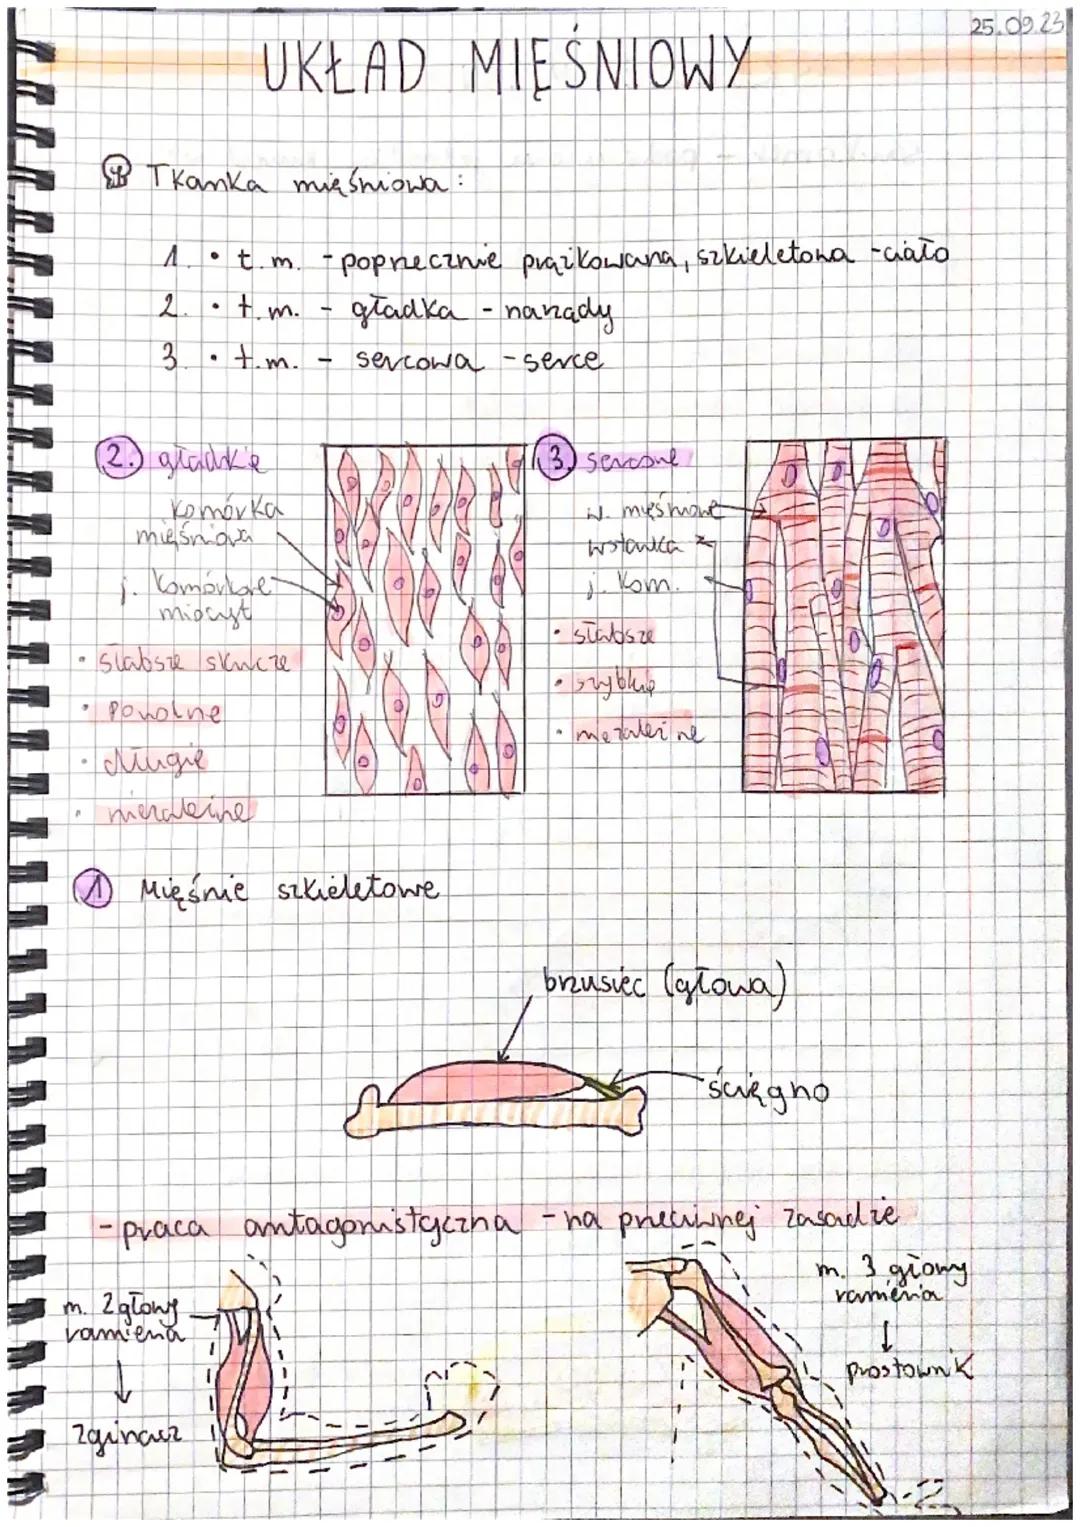 25.09.23
UKŁAD MIĘŚNIOWY
Tkanka mięśniowa:
1. • t.m. - poprzecznie prążkowana, szkieletowa - ciało
2. • t.m. - gładka - narządy
3. • t.m. - sercowa - serce
2. gładkie
komórka
mięśniowa
j. komórkowe
miocyt
• słabsze skurcze
• powolne
• długie
• niezależne
3. sercowe
w. mięśniowe
wstawka
j. kom.
• słabsze
• szybkie
• niezależne
1 Mięśnie szkieletowe
brzusiec (głowa)
ścięgno
- praca antagonistyczna - na przeciwnej zasadzie
m. 2 głowy
ramienia
↓
zginacz
m. 3 głowy
ramienia
↓
prostownik